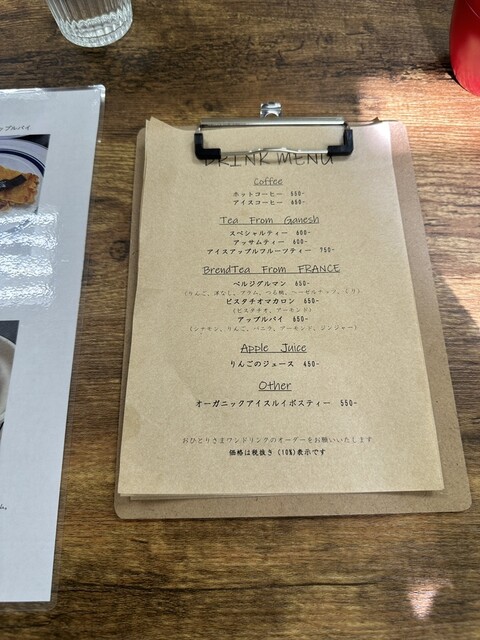 ップルパイ
DRINK MENU
Coffee
ホットコーヒー 550-
アイスコーヒー 650-
Tea From Ganesh
スペシャルティー 600-
アッサムティー 600-
アイスアップルフルーツティー 750-
BrendTea From FRANCE
ベルジグルマン 650-
ピスタチオマカロン 650-
(ピスタチオ、アーモンド)
アップルパイ 650-
(シナモン、りんご、バニラ、アーモンド、ジンジャー)
Apple Juice
りんごのジュース 450-
Other
オーガニックアイスルイボスティー 550-
おひとりさまワンドリンクのオーダーをお願いいたします
価格は税抜き (10%)表示です
ム。